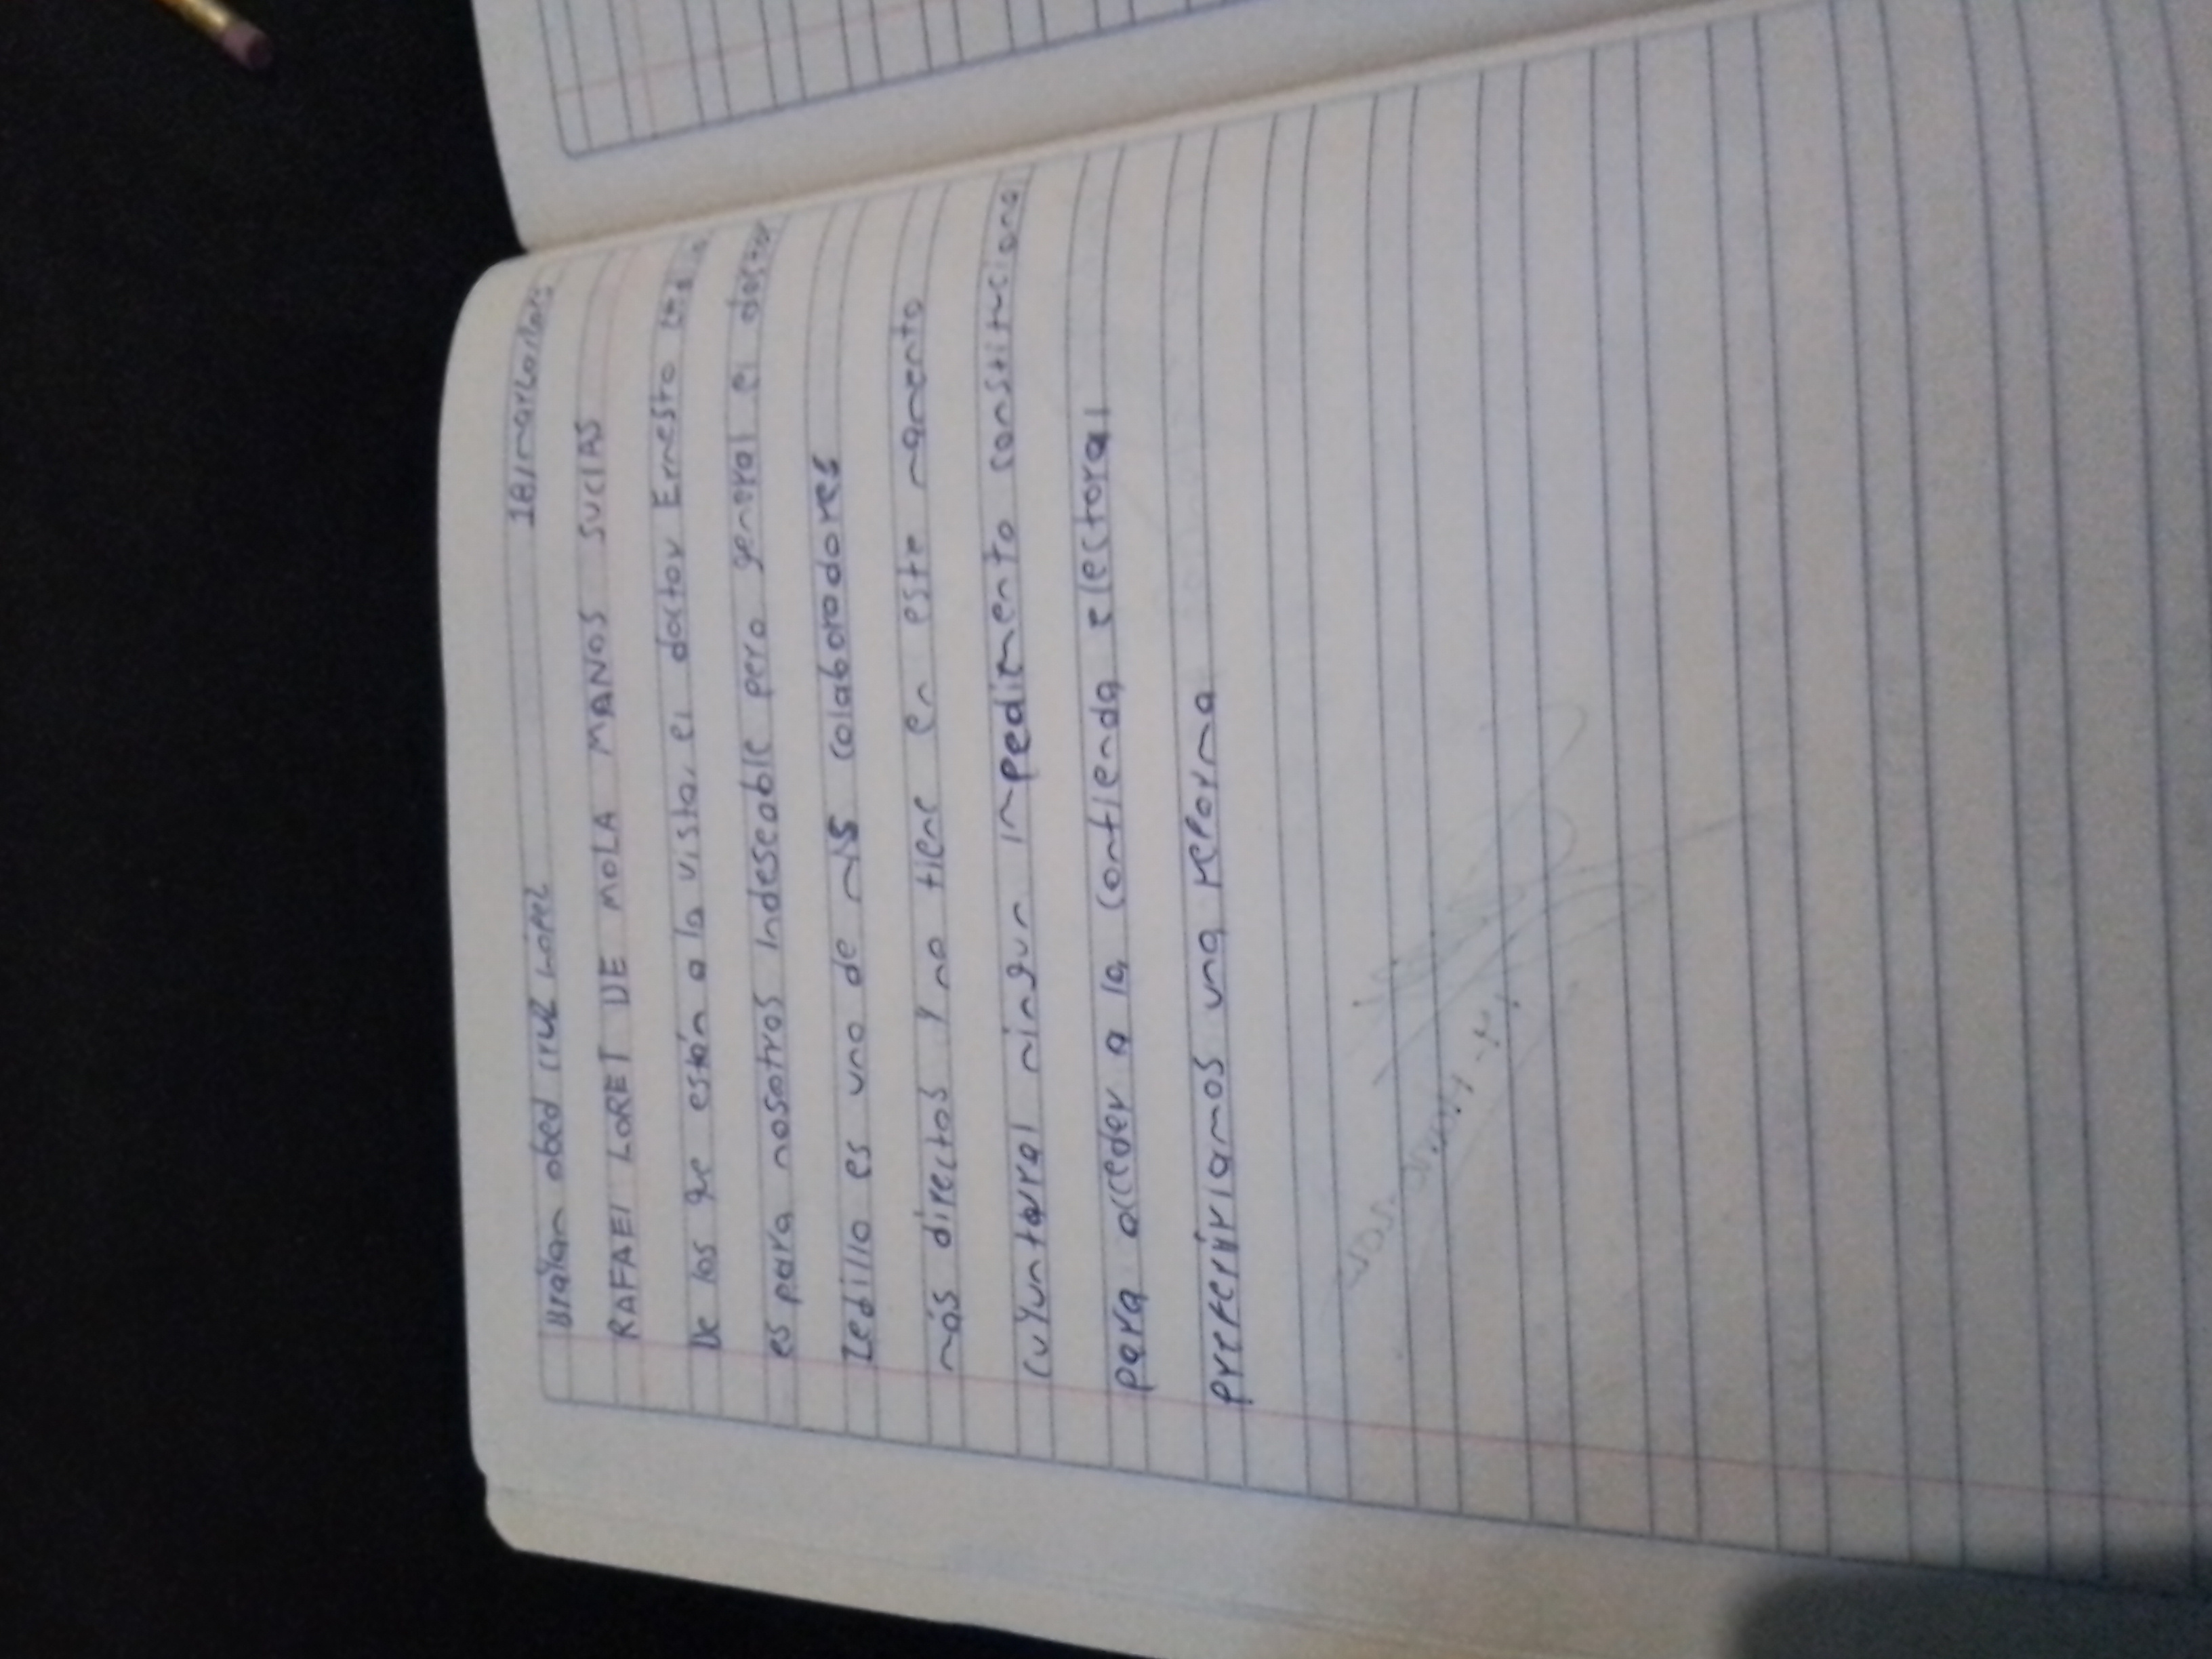 Braian obed cruz López 18/marzo/
RAFAEl LORET DE MOLA MANOS SUCIAS
De los que están a la vista, el doctor Ernesto
es para nosotros Indeseable pero general el doctor
Zedillo es uno de mis colaborodores
más directos y no tiene en este momento
cuyuntural ningun impedimento constituciona
para acceder a la contienda electoral
preferiríamos una reforma